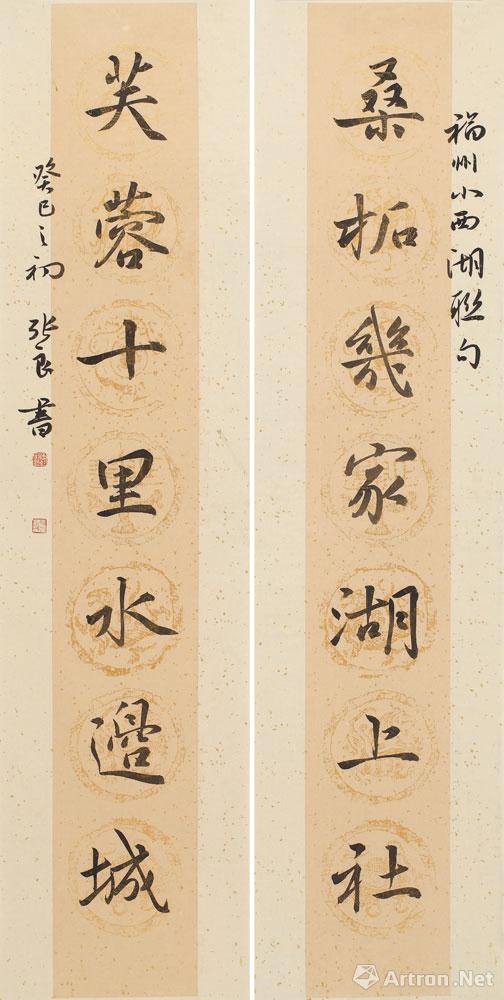 福州小西湖联句
桑柘几家湖上社
芙蓉十里水边城
癸巳之初 张良书
Artron.Net